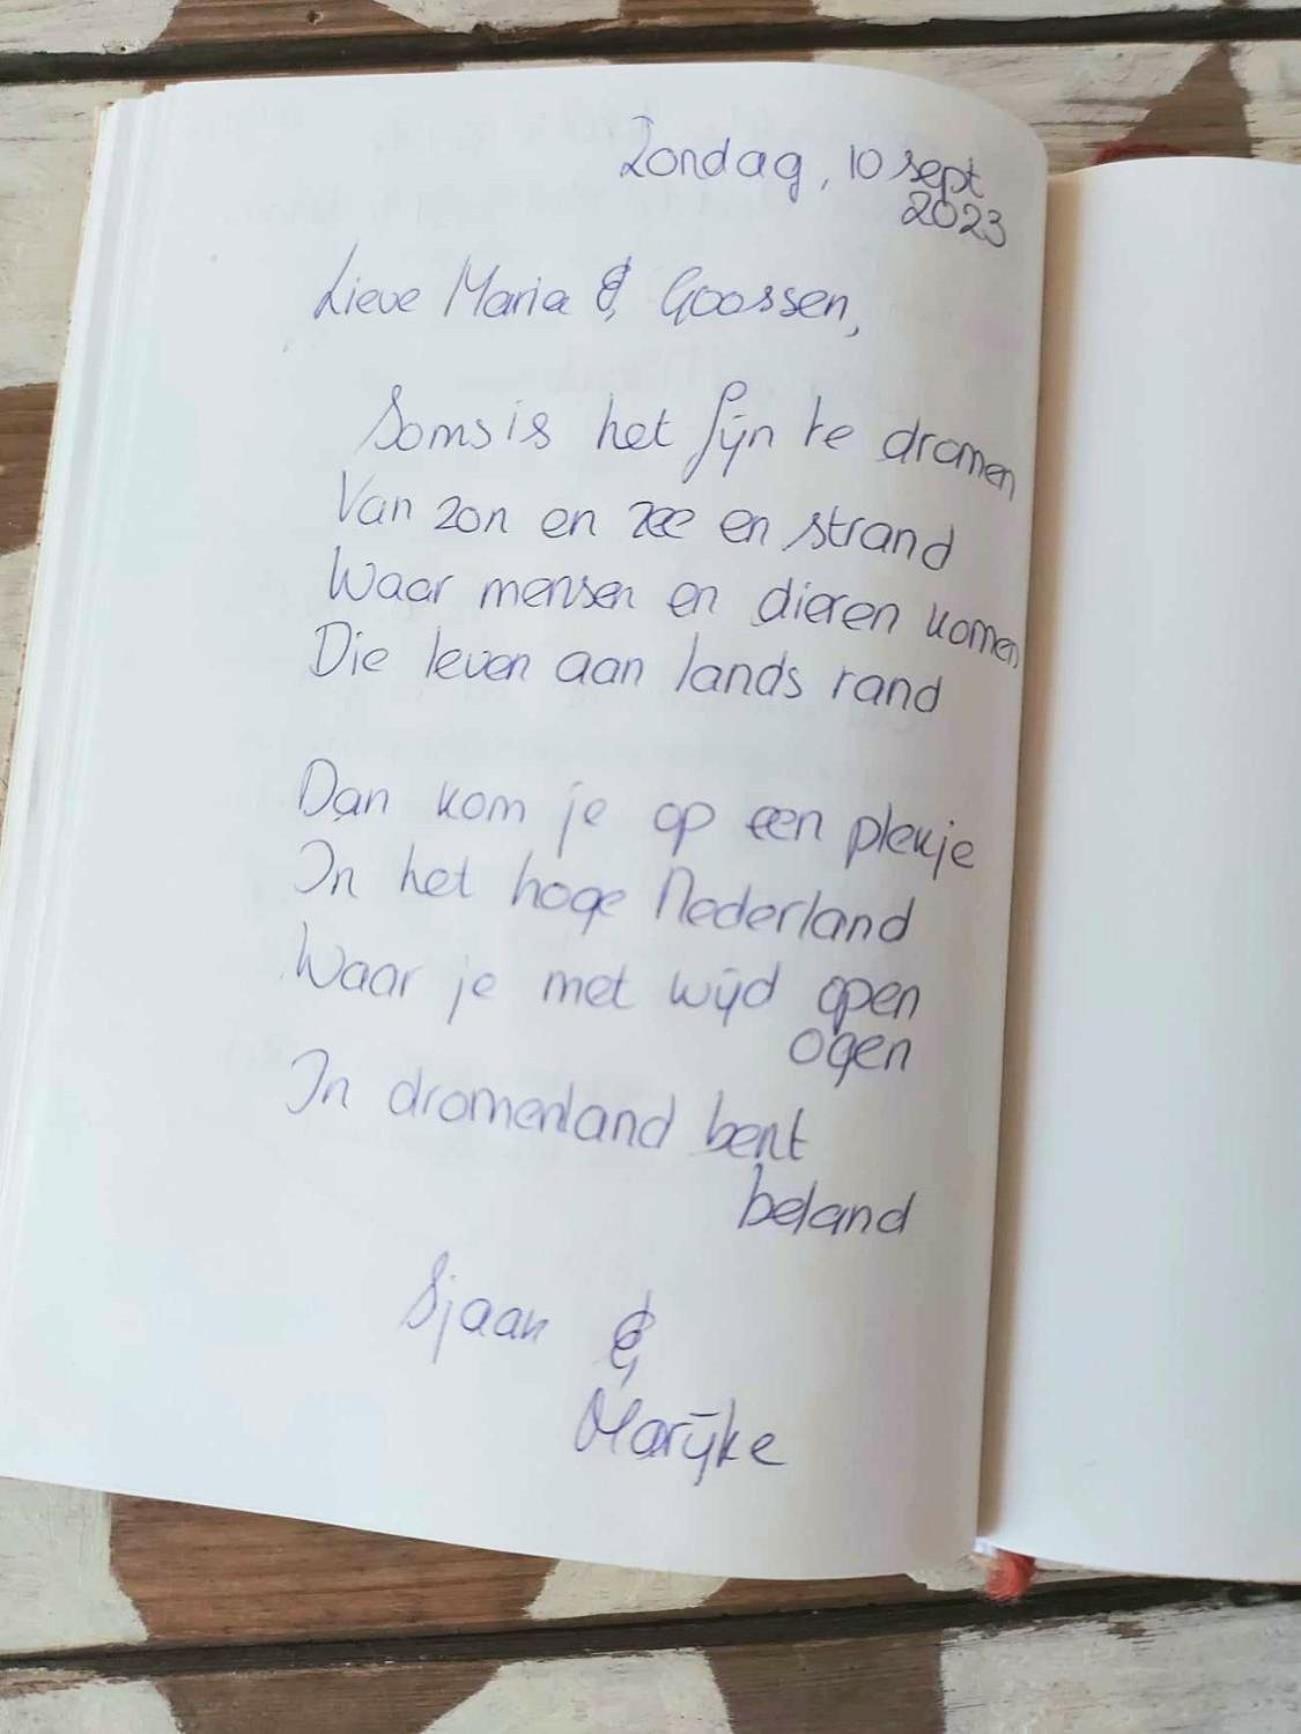 Zondag, 10 sept
2023
Lieve Maria & Goossen,
Soms is het fijn te dromen
Van zon en zee en strand
Waar mensen en dieren komen
Die leven aan lands rand
Dan kom je op een plekje
In het hoge Nederland
Waar je met wijd open
ogen
In dromenland bent
beland
Sjaak &
Marijke